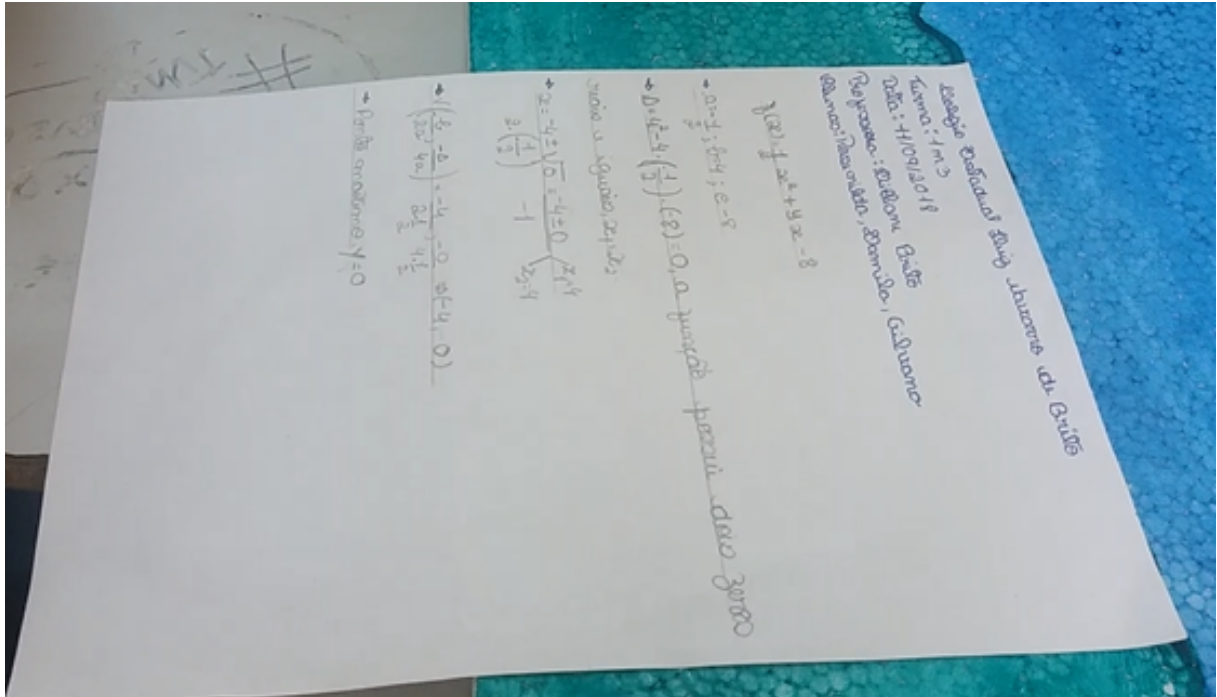 Colégio Estadual Luiz Navarro de Brito
Turma: 1m3
Data: 11/09/2018
Professora: Brito
Alunas: Damila, Gilvana
f(x) = -1/2 x² + 4x - 8
→ a = -1/2 ; b = 4 ; c - 8
→ Δ = 4² - 4 · (-1/2) · (-8) = 0, a função possui dois zeros
reais e iguais, x₁ = x₂
→ x = -4 ± √0 / 2·(-1/2) = -4 ± 0 / -1 x₁ = 4 x₂ = 4
→ V(-b/2a, -Δ/4a) = -4/2·1/2, -0/4·1/2 → (-4, 0)
→ Ponto máximo Y = 0